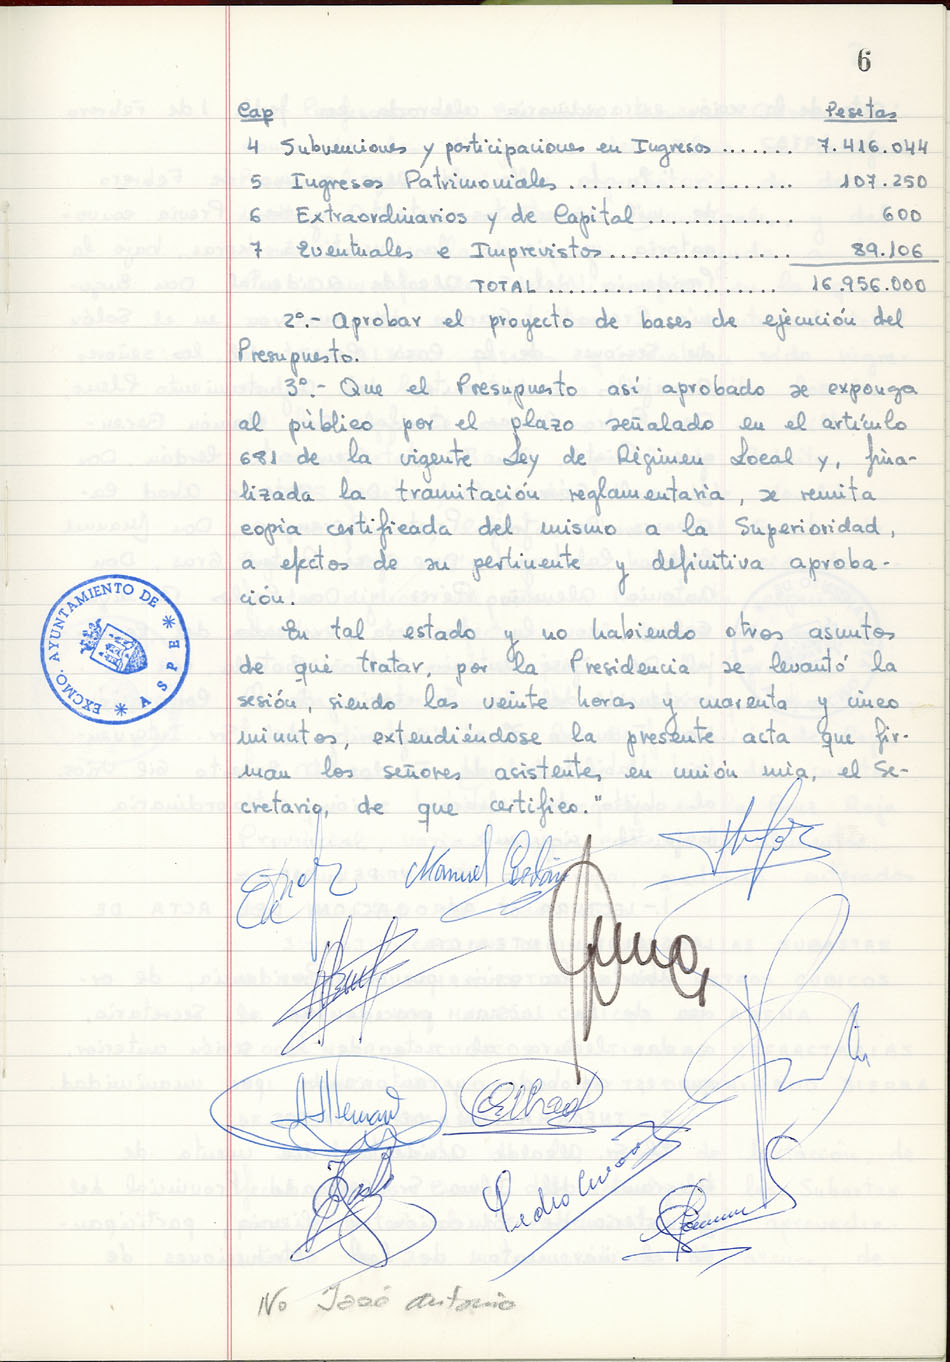 6
Cap Pesetas
4 Subvenciones y participaciones en Ingresos ....... 7.416.044
5 Ingresos Patrimoniales .................... 107.250
6 Extraordinarios y de Capital .............. 600
7 Eventuales e Imprevistos ................. 89.106
TOTAL ....................... 16.956.000
2º.- Aprobar el proyecto de bases de ejecución del
Presupuesto.
3º.- Que el Presupuesto así aprobado se exponga
al público por el plazo señalado en el artículo
681 de la vigente Ley de Régimen Local y, fina-
lizada la tramitación reglamentaria, se remita
copia certificada del mismo a la Superioridad,
a efectos de su pertinente y definitiva aproba-
ción.
EXCMO. AYUNTAMIENTO DE * ASPE *
En tal estado y no habiendo otros asuntos
de qué tratar, por la Presidencia se levantó la
sesión, siendo las veinte horas y cuarenta y cinco
minutos, extendiéndose la presente acta que fir-
man los señores asistentes, en unión mia, el Se-
cretario, de que certifico."
Manuel
Pedro
No José Antonio